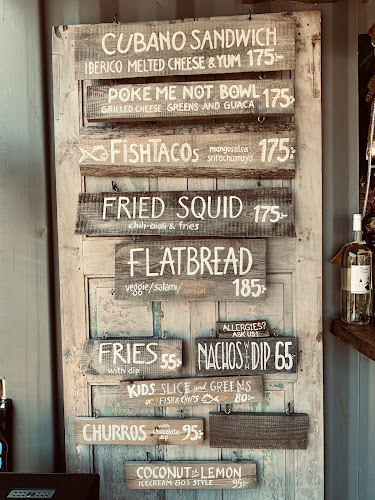 CUBANO SANDWICH
IBERICO MELTED CHEESE & YUM 175:-
POKE ME NOT BOWL
GRILLED CHEESE GREENS AND GUACA 175:-
FISHTACOS mangosalsa 175:-
srirachamayo
FRIED SQUID 175:-
chili-aioli & fries
FLATBREAD
veggie/salami/ special 185:-
ALLERGIES?
ASK US!
FRIES 55:-
with dip
NACHOS WITH DIP 65
KIDS SLICE and GREENS
or FISH & CHIPS 80:-
CHURROS with chocolate dip 95:-
COCONUT or LEMON
ICECREAM 80'S STYLE 95:-